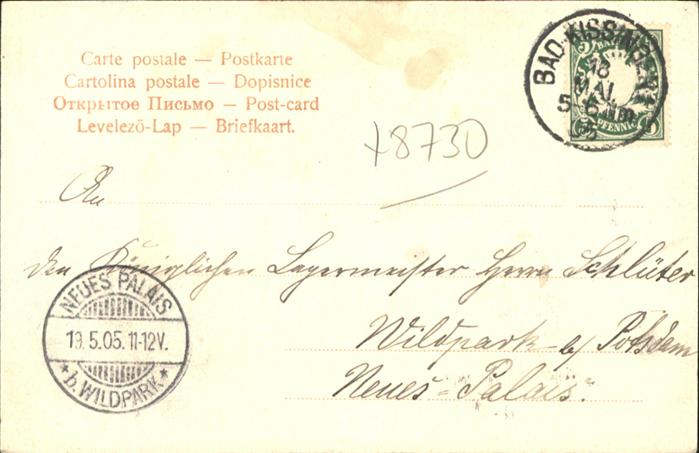 Carte postale — Postkarte
Cartolina postale — Dopisnice
Открытое Письмо — Post-card
Levelező-Lap — Briefkaart.
BAD KISSINGEN
18
MAI
5-6 Nm
05
PFENNIG
+8730
An
den Königlichen Lagermeister Herrn Schlüter
Wildpark b/ Potsdam
Neues-Palais.
NEUES PALAIS
19.5.05.11-12V.
* b. WILDPARK *